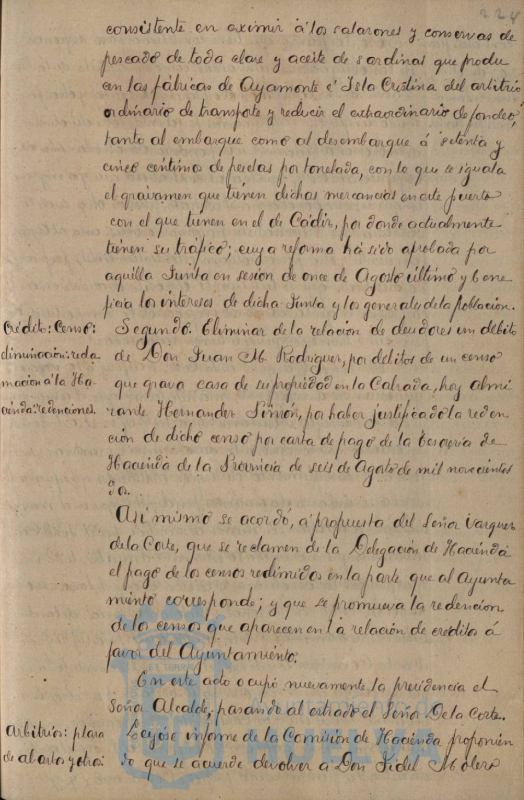 224
consistente en eximir á los salazones y conservas de
pescado de toda clase y aceite de sardinas que produ
cen las fábricas de Ayamonte é Isla Cristina del arbitrio
ordinario de transporte y reducir el extraordinario de fondeo,
tanto al embarque como al desembarque á setenta y
cinco céntimos de pesetas por tonelada, con lo que se iguala
el gravamen que tienen dichas mercancias en este puerto
con el que tienen en el de Cádiz, por donde actualmente
tienen su tráfico; cuya reforma há sido aprobada por
aquella Junta en sesión de once de Agosto último y bene
ficia los intereses de dicha Junta y los generales de la población.
Crédito: Censo:
diminución: recla
mación á la Ha-
cienda: redenciones.
Segundo. Eliminar de la relación de deudores un débito
de Don Juan M. Rodriguez, por délitos de un censo
que grava casa de su propiedad en la Calzada, hoy almi
rante Hernandez Pinzón, por haber justificado la reden
ción de dicho censo por carta de pago de la Tesorería de
Hacienda de la Provincia de seis de Agosto de mil novecientos
dos.
Asi mismo se acordó, á propuesta del Señor Vazquez
de la Corte, que se reclamen de la Delegación de Hacienda
el pago de los censos redimidos en la parte que al Ayunta
miento corresponde; y que se promueva la redención
de los censos que aparecen en la relación de crédito á
favor del Ayuntamiento.
En este acto ocupó nuevamente la presidencia el
Señor Alcalde, pasando al estrado el Señor De la Corte.
Arbitrios: plaza
de abastos y otros:
Leyóse informe de la Comisión de Hacienda proponien
do que se acuerde devolver a Don Fidel Molero